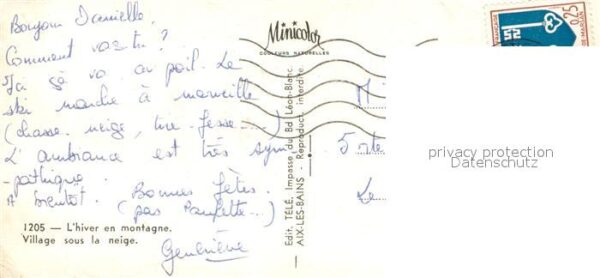 Bonjour Danielle,
Comment vas tu ?
Ici ça va au poil. Le
ski marche à merveille
(chasse neige, tire fesse...)
L'ambiance est très sym
-pathique.
A bientôt. Bonnes fêtes.
(pas Paulette..)
Geneviève
1205 — L'hiver en montagne.
Village sous la neige.
Minicolor
COULEURS NATURELLES
Edit. TÉLÉ, Impasse du Bd Léon-Blanc
AIX-LES-BAINS - Reproduct. interdite
M
5 rte
Le
0,25
privacy protection
Datenschutz